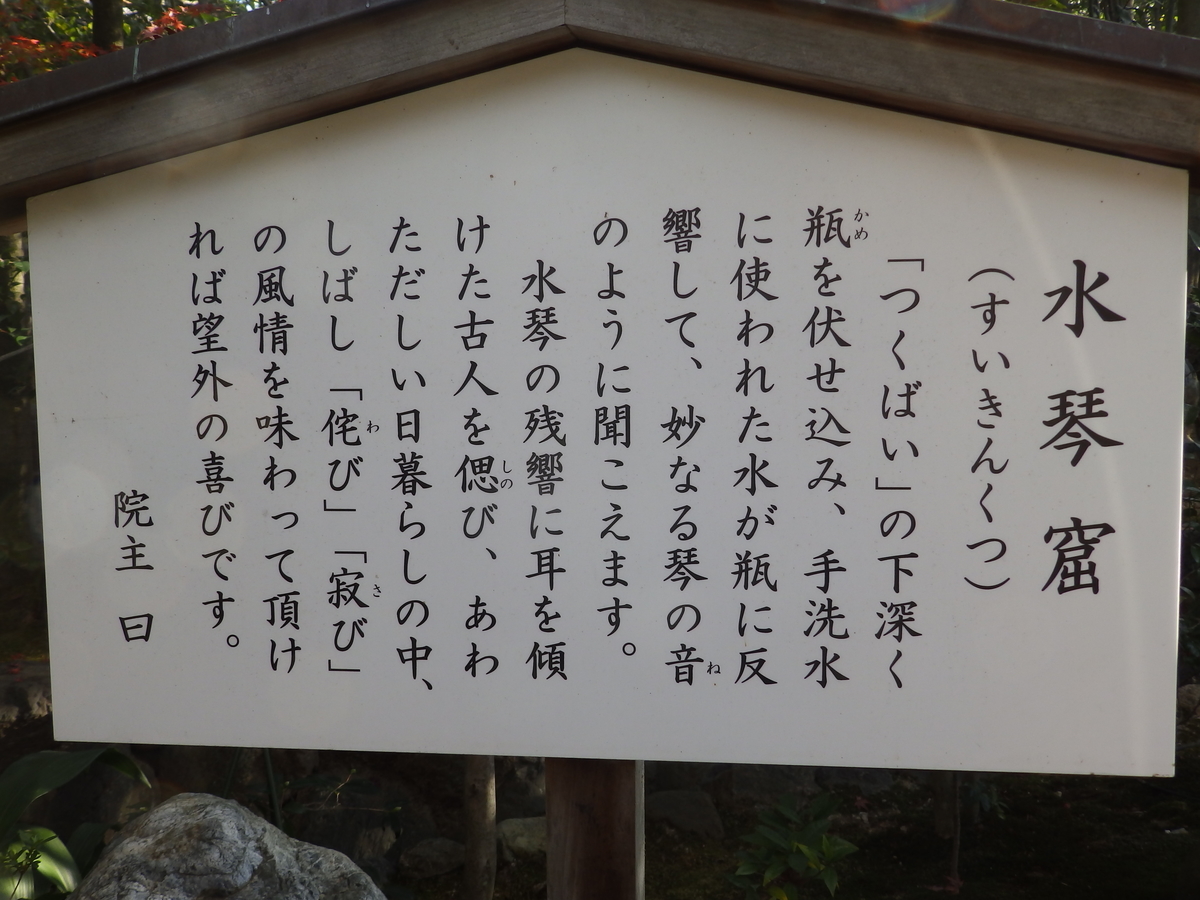 水琴窟
（すいきんくつ）
「つくばい」の下深く
瓶を伏せ込み、手洗水
に使われた水が瓶に反
響して、妙なる琴の音
のように聞こえます。
水琴の残響に耳を傾
けた古人を偲び、あわ
ただしい日暮らしの中、
しばし「侘び」「寂び」
の風情を味わって頂け
れば望外の喜びです。
院主 曰
かめ
ね
しの
わ
さ